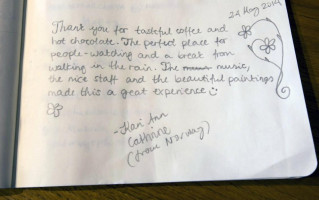 21 May 2014
Thank you for tasteful coffee and
hot chocolate. The perfect place for
people-watching and a break from
walking in the rain. The music,
the nice staff and the beautiful paintings
made this a great experience ☺
-Kari Ann
(from Norway)